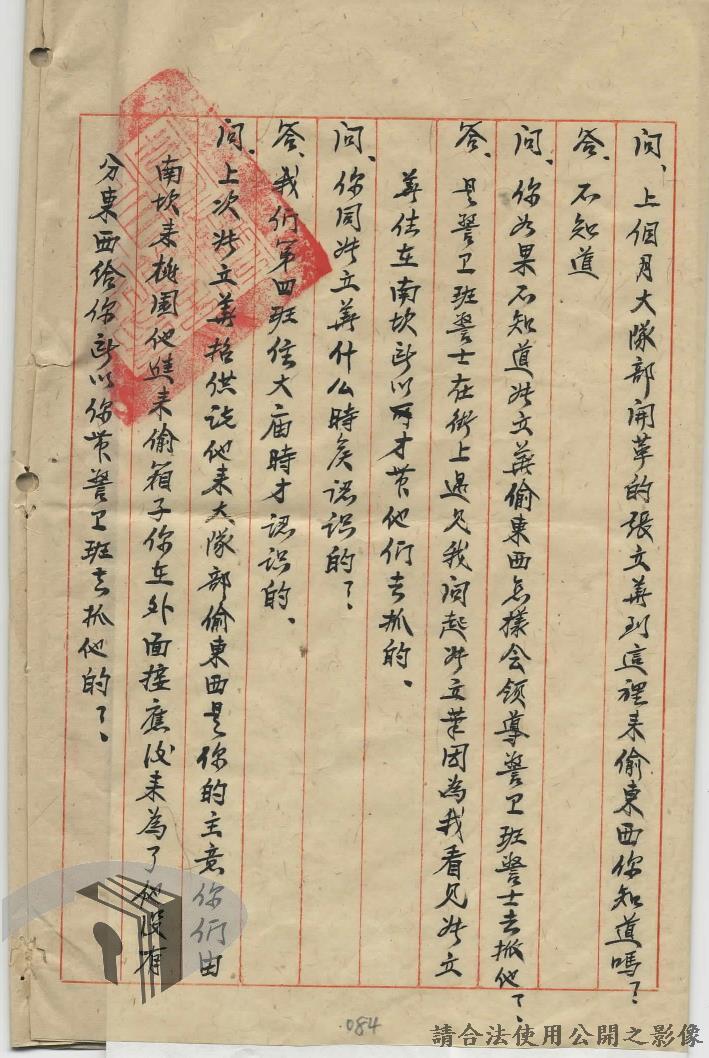 問、上個月大隊部開革的張文華到這裡来偷東西你知道嗎？
答、不知道
問、你如果不知道张文華偷東西怎樣会领導警卫班警士去抓他？、
答、是警卫班警士在街上遇见我問起张文華因為我看见张文
華住在南坎所以才带他们去抓的、
问、你同张文華什么時矦認识的？
答、我们第四班住大庙時才認识的、
问、上次张文華招供说他来大隊部偷東西是你的主意你们由
南坎来桃園他進来偷箱子你在外面接應後来為了他没有
分東西给你所以你带警卫班去抓他的？、
084
請合法使用公開之影像